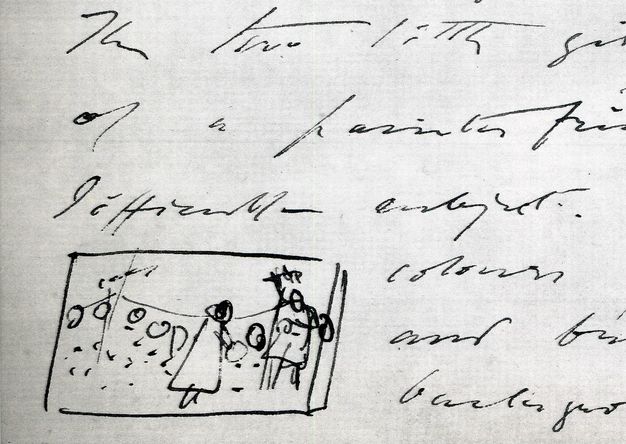 The two little gi
of a painter fri
Difficult subject.
colours
and bri
backgro